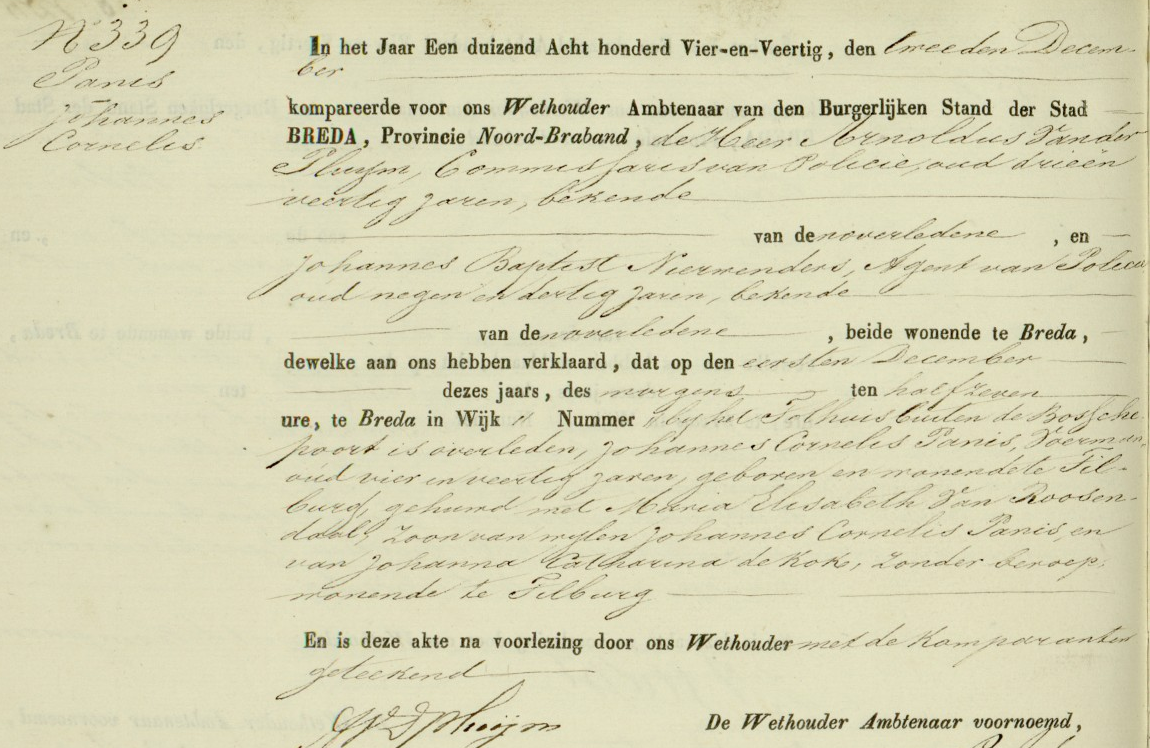 N 339
Panis
Johannes
Cornelis
In het Jaar Een duizend Acht honderd Vier-en-Veertig, den tweeden Decem-
ber
kompareerde voor ons Wethouder Ambtenaar van den Burgerlijken Stand der Stad
BREDA, Provincie Noord-Braband, de Heer Arnoldus Vander
Pluym, Commissaris van Policie, oud drieën
veertig jaren, bekende
van den overledene, en
Johannes Baptist Nierwenders, Agent van Policie
oud negen en dertig jaren, bekende
van den overledene, beide wonende te Breda,
dewelke aan ons hebben verklaard, dat op den eersten December
dezes jaars, des morgens ten half zeven
ure, te Breda in Wijk " Nummer " by het Tolhuis buiten de Bossche
poort is overleden, Johannes Cornelis Panis, Voerman,
oud vier en veertig jaren, geboren en wonende te Til-
burg, gehuwd met Maria Elisabeth Van Roosen-
daal, Zoon van wylen Johannes Cornelis Panis, en
van Johanna Catharina de Kok, zonder beroep,
wonende te Tilburg
En is deze akte na voorlezing door ons Wethouder met de Komparanten
geteekend
De Wethouder Ambtenaar voornoemd,